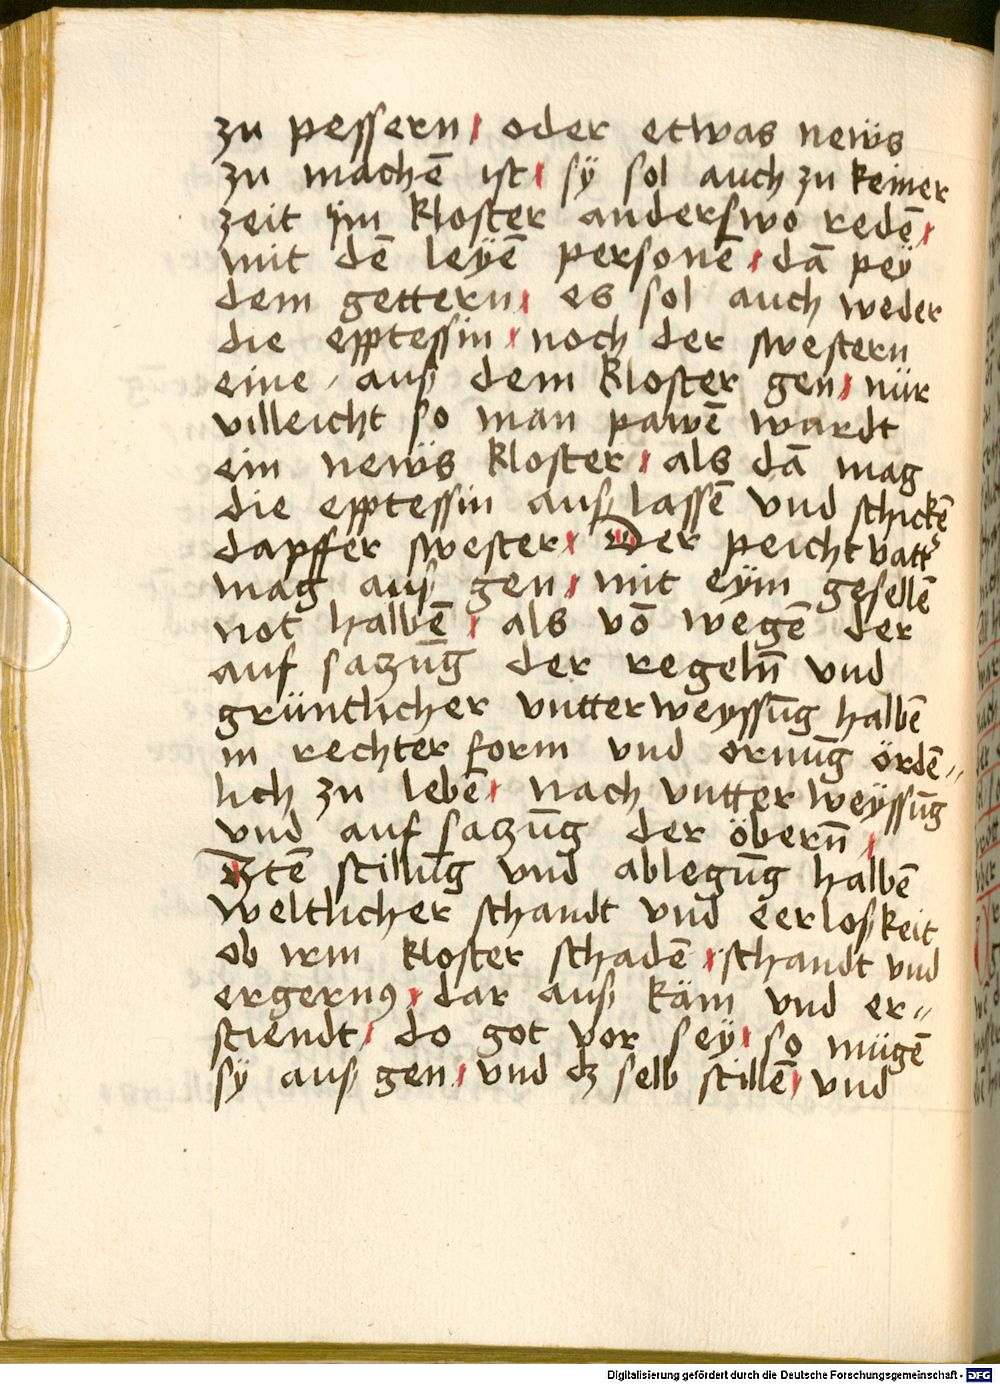 zu pessern / oder etwas neẅs
zu machē ist / sÿ sol auch zu keiner
zeit ÿm kloster anderswo redē /
mit dē leyē personē / dā peÿ
dem gettern / es sol auch weder
die epptessin / noch der swestern
eine / auß dem kloster gen / nür
villeicht so man pawē wardt
ein neẅs kloster / als dā mag
die epptessin auß lassē vnd schickē
dapffer swester / Der peicht vatt
mag auß gen / mit eym gesellē
not halbē / als vō wegē der
auf saczūg der regeln̄ vnd
grüntlicher vntterweyssūg halbē
in rechter form vnd ornūg ördē〃
lich zu lebē / nach vntter weÿssūg
vnd auf saczūg der öbern̄ /
Zten stillūg vnd ablegūg halbē
weltlicher schandt vnd eerloßkeit
ob irm kloster schadē / schandt vnd
ergernꝯ / dar auß käm vnd er〃
stiendt / do got vor sey / so mügē
sÿ auß gen / vnd dz selb stillē / vnd
Digitalisierung gefördert durch die Deutsche Forschungsgemeinschaft - DFG